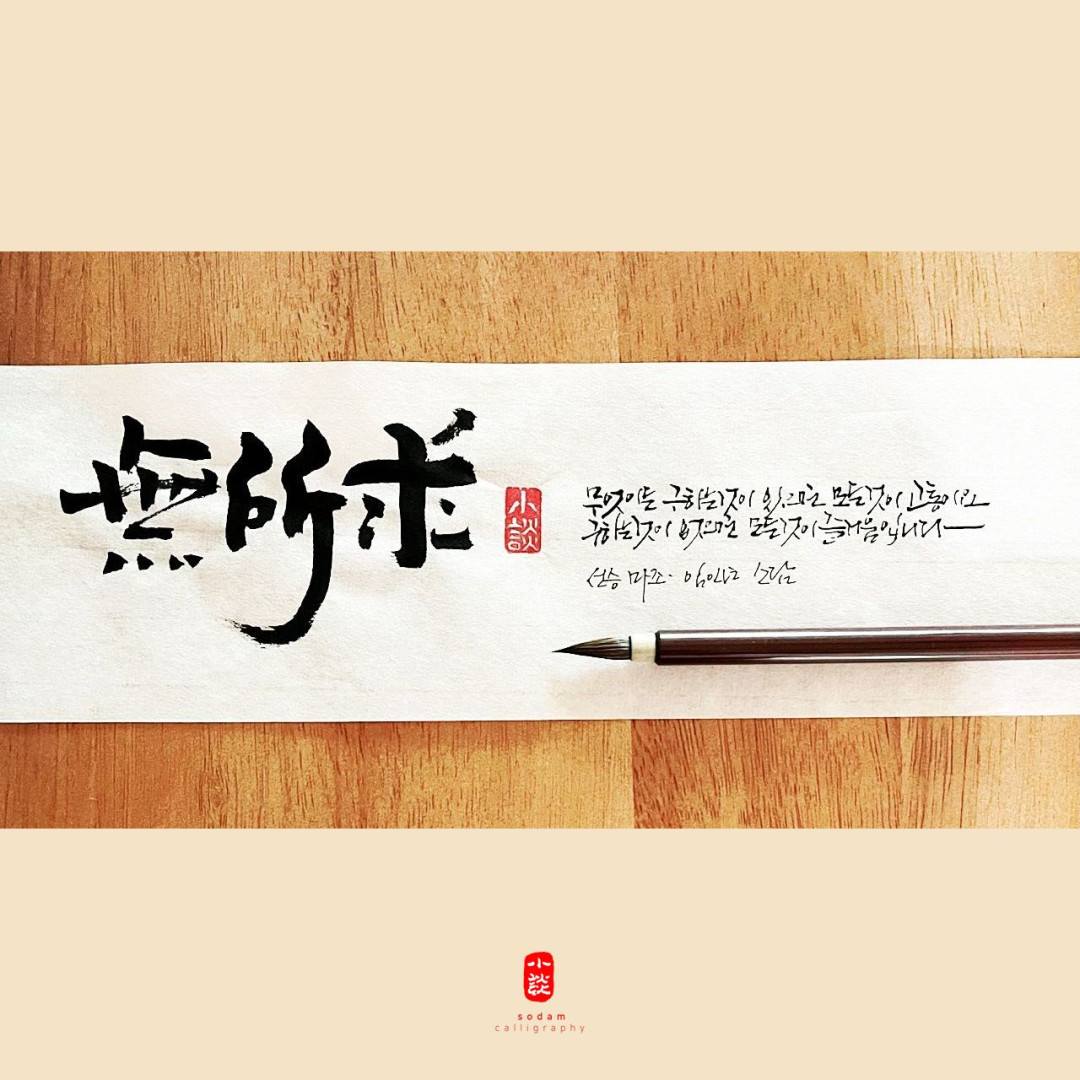 無所求
小談
무엇이든 구하는것이 있으면 모든것이 고통이요
구하는것이 없으면 모든것이 즐거움입니다
선승 마조· 임인年 소담
小談
sodam
calligraphy